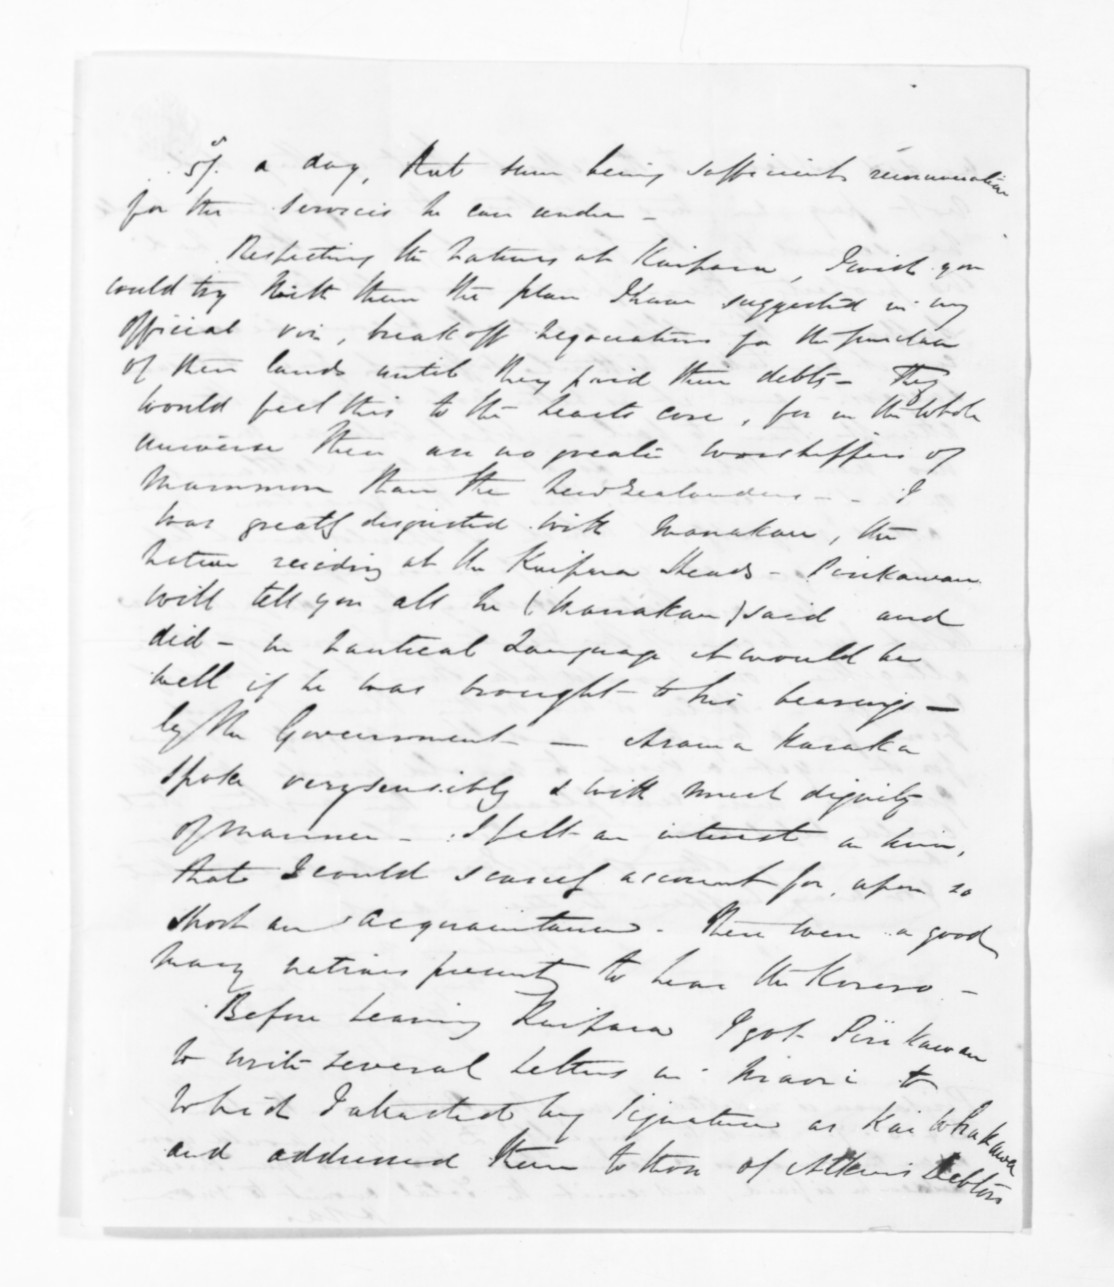 5/. a day, that sum being sufficient remuneration
for the services he can render –
Respecting the Natives at Kaipara, I wish you
would try with them the plan I have suggested in my
official viz, break off negociations for the purchase
of their lands until they paid their debts – They
would feel this to the hearts core, for in the whole
universe there are no greater worshippers of
Mammon than the New Zealanders – – I
was greatly disgusted with Manakau, the
Native residing at the Kaipara Heads –
will tell you all he (Manakau) said and
did – in Nautical Language it would be
well if he was brought to his bearings –
by the Government – Arama Karaka
spoke very sensibly & with much dignity
of manner – I felt an interest in him,
that I could scarcely account for, upon so
short an acquaintance. There were a good
many natives present to hear the Korero –
Before leaving Kaipara I got
to write several Letters in Maori to
which I attached my signature as Kai Whakawa
and addressed them to those of Atkins Debtors